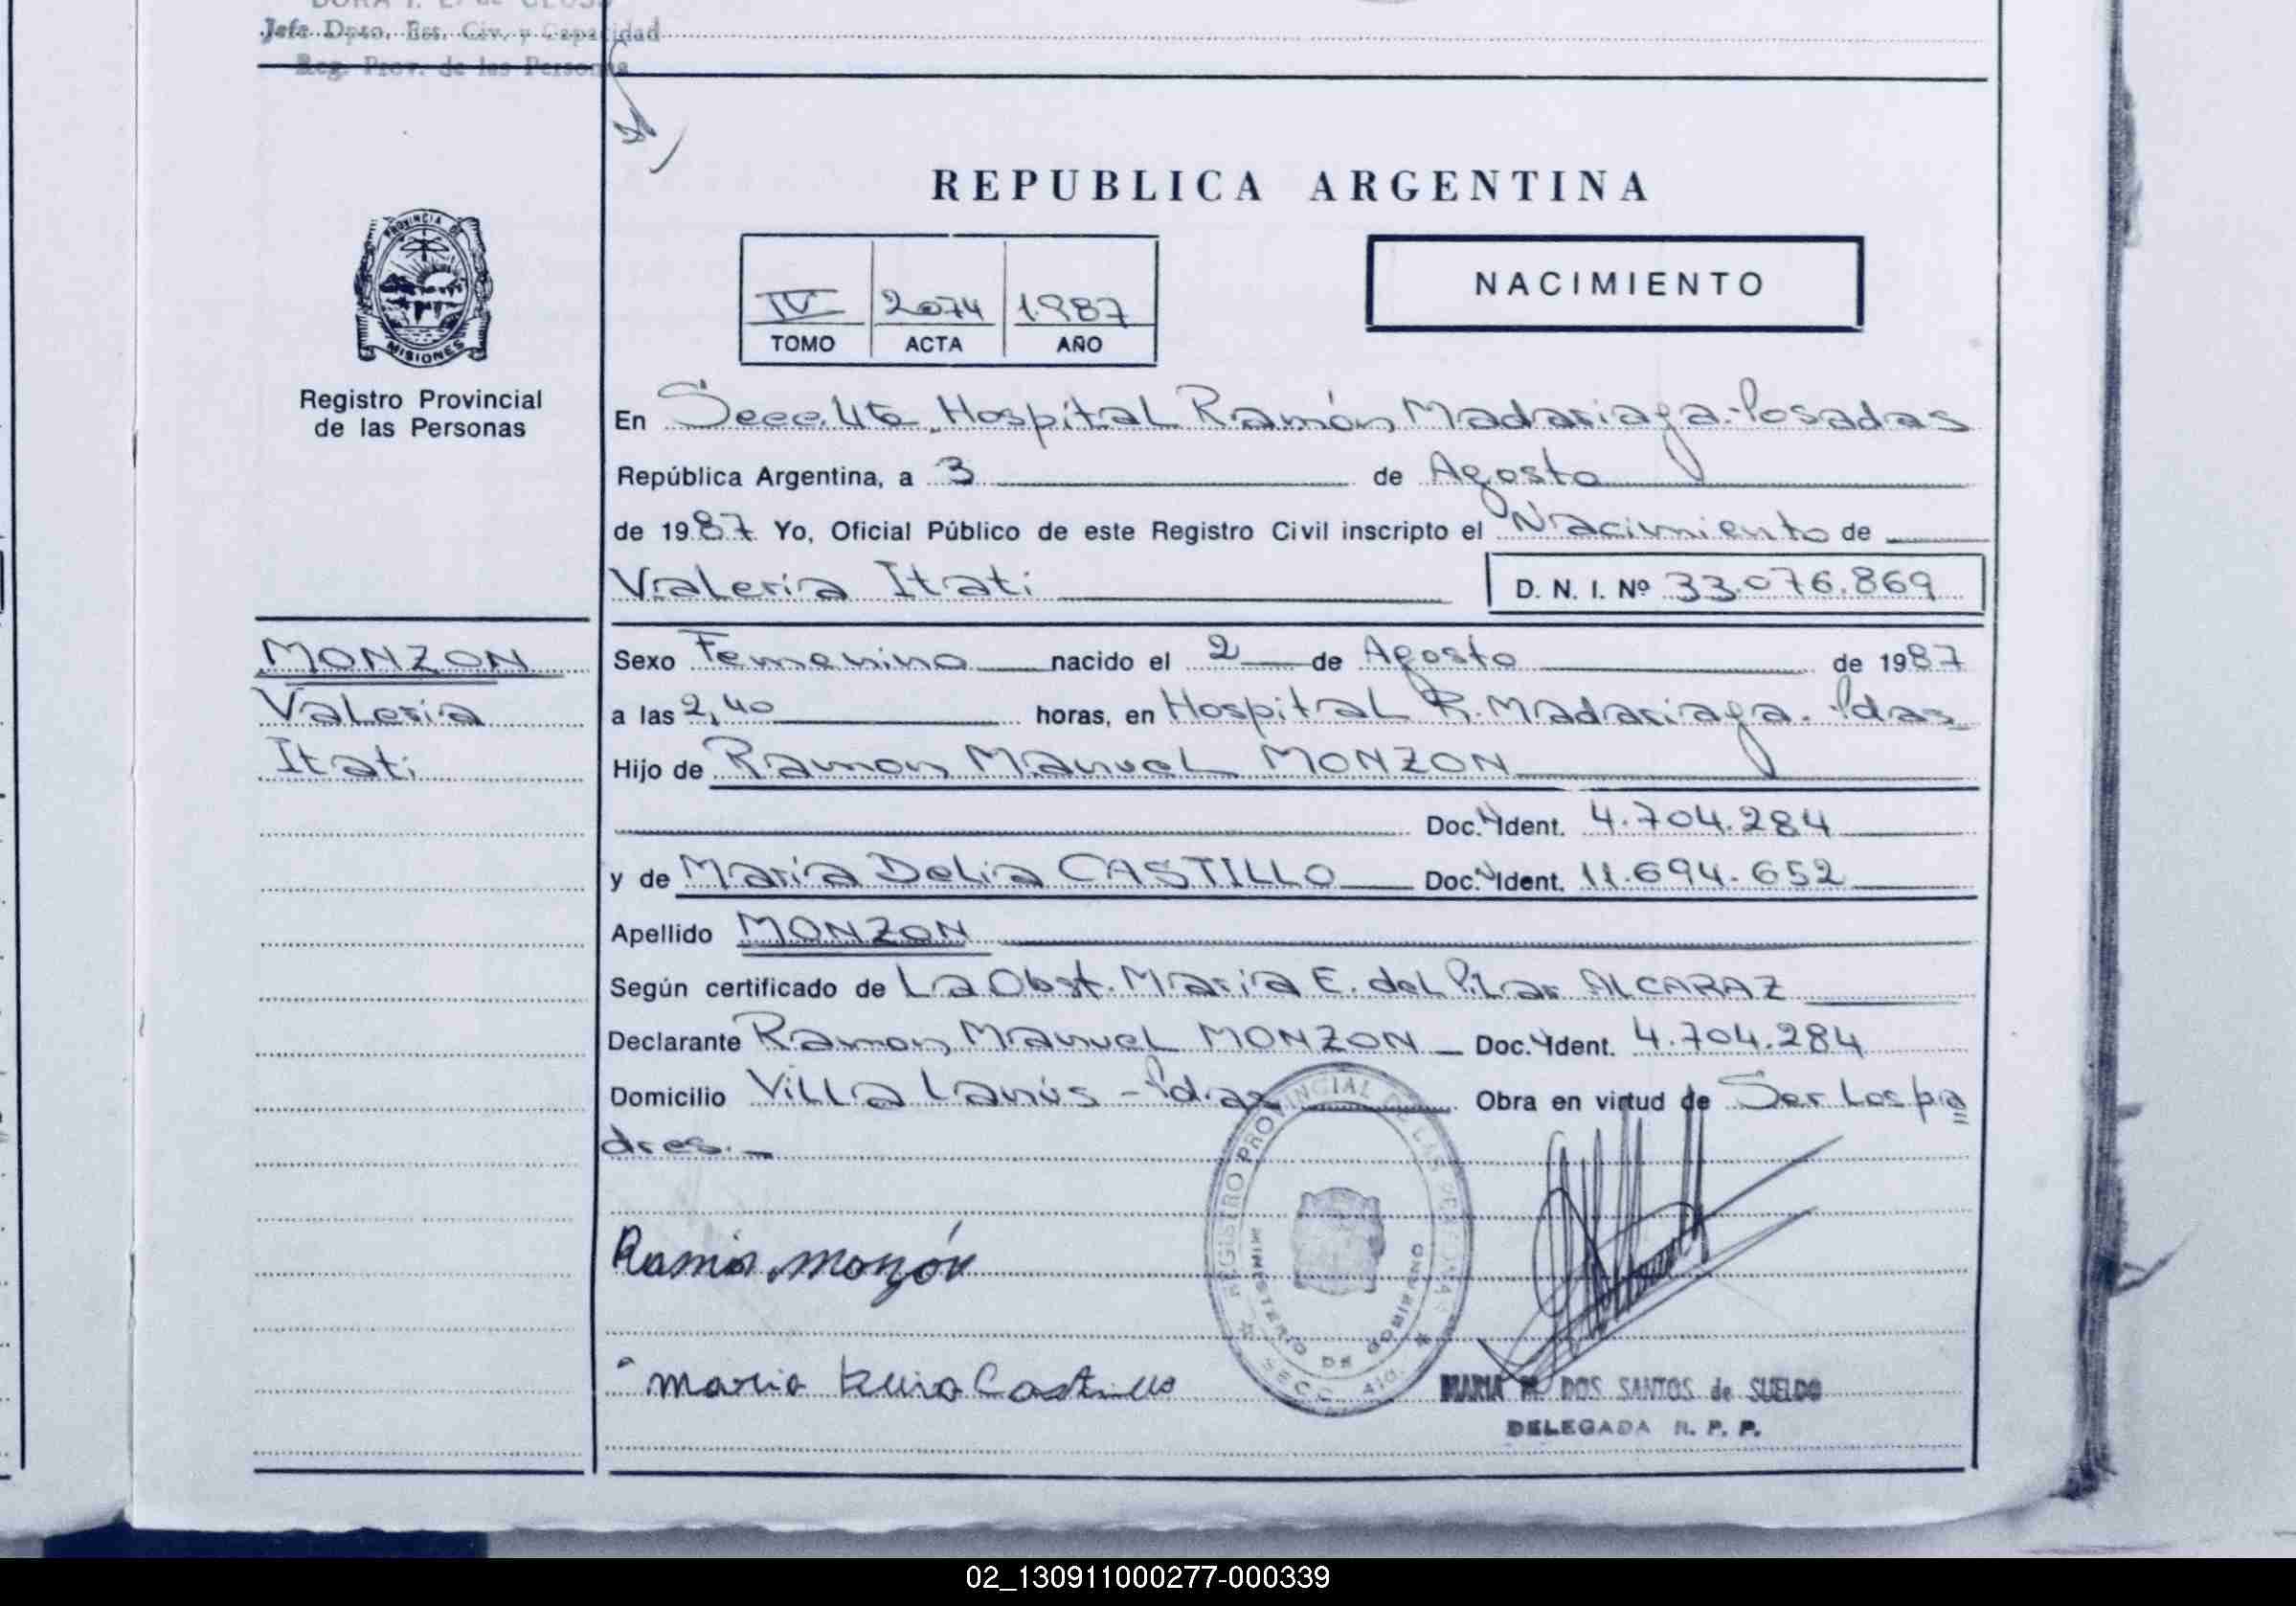 Jefe Dpto. Est. Civ. y Capacidad
Reg. Prov. de las Personas
PROVINCIA DE
MISIONES
Registro Provincial
de las Personas
MONZON
Valeria
Itati
REPUBLICA ARGENTINA
IV 2074 1987
TOMO ACTA AÑO
NACIMIENTO
En Secc. 4ta. Hospital Ramón Madariaga-Posadas
República Argentina, a 3 de Agosto
de 1987 Yo, Oficial Público de este Registro Civil inscripto el Nacimiento de
Valeria Itati D. N. I. Nº 33.076.869
Sexo Femenino nacido el 2 de Agosto de 1987
a las 2,40 horas, en Hospital R. Madariaga. Pdas
Hijo de Ramon Manuel MONZON
Doc. Ident. 4.704.284
y de María Delia CASTILLO Doc. Ident. 11.694.652
Apellido MONZON
Según certificado de La Obst. María E. del Pilar ALCARAZ
Declarante Ramon Manuel MONZON Doc. Ident. 4.704.284
Domicilio Villa Lanús - Pdas Obra en virtud de Ser Los pa
dres.-
REGISTRO PROVINCIAL DE LAS PERSONAS
MINISTERIO DE GOBIERNO
SECC. 4ta.
Ramón monzón
maria Castillo
MARIA M. DOS SANTOS de SUELDO
DELEGADA R. P. P.
02_130911000277-000339